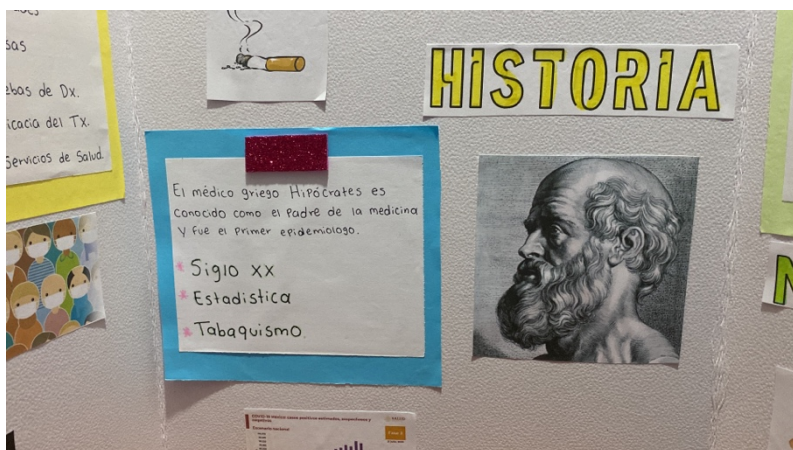 sas
ebas de Dx.
icacia del Tx.
Servicios de Salud.
HISTORIA
El médico griego Hipócrates es
conocido como el Padre de la medicina
y fue el primer epidemiologo.
* Siglo XX
* Estadistica
* Tabaquismo.
N